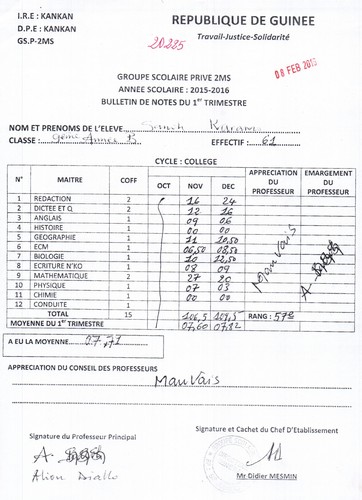 I.R.E : KANKAN
D.P.E : KANKAN
GS.P-2MS
REPUBLIQUE DE GUINEE
Travail-Justice-Solidarité
20225
08 FEB 2016
GROUPE SCOLAIRE PRIVE 2MS
ANNEE SCOLAIRE : 2015-2016
BULLETIN DE NOTES DU 1er TRIMESTRE
NOM ET PRENOMS DE L'ELEVE
CLASSE : 9ème Année B EFFECTIF : 61
CYCLE : COLLEGE
N° MAITRE COFF OCT NOV DEC APPRECIATION DU PROFESSEUR EMARGEMENT DU PROFESSEUR
1 REDACTION 2 16 24
2 DICTEE ET Q 2 12 16
3 ANGLAIS 1 09 06
4 HISTOIRE 1 00 00
5 GEOGRAPHIE 1 11 10,50
6 ECM 1 06,50 08,50
7 BIOLOGIE 1 10 12,50
8 ECRITURE N'KO 1 08 09
9 MATHEMATIQUE 2 27 20
10 PHYSIQUE 1 07 03
11 CHIMIE 1 00 00
12 CONDUITE
Mauvais
TOTAL 15 106,5 109,5 RANG : 57è
MOYENNE DU 1er TRIMESTRE 07,60 07,82
A EU LA MOYENNE 07,71
APPRECIATION DU CONSEIL DES PROFESSEURS
Mauvais
Signature du Professeur Principal
Signature et Cachet du Chef D'Etablissement
Alion Diallo
Mr Didier MESMIN